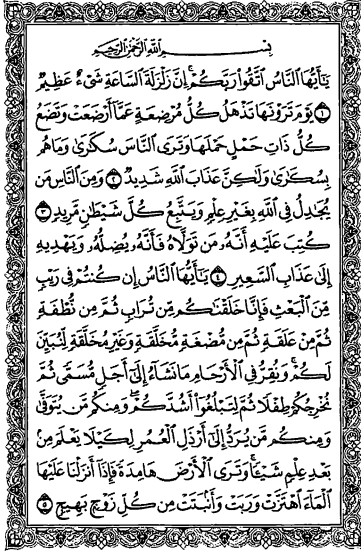 بِسْمِ اللَّهِ الرَّحْمَٰنِ الرَّحِيمِ
يَٰٓأَيُّهَا ٱلنَّاسُ ٱتَّقُوا۟ رَبَّكُمْ ۚ إِنَّ زَلْزَلَةَ ٱلسَّاعَةِ شَىْءٌ عَظِيمٌ
۝١ يَوْمَ تَرَوْنَهَا تَذْهَلُ كُلُّ مُرْضِعَةٍ عَمَّآ أَرْضَعَتْ وَتَضَعُ
كُلُّ ذَاتِ حَمْلٍ حَمْلَهَا وَتَرَى ٱلنَّاسَ سُكَٰرَىٰ وَمَا هُم
بِسُكَٰرَىٰ وَلَٰكِنَّ عَذَابَ ٱللَّهِ شَدِيدٌ ۝٢ وَمِنَ ٱلنَّاسِ مَن
يُجَٰدِلُ فِى ٱللَّهِ بِغَيْرِ عِلْمٍ وَيَتَّبِعُ كُلَّ شَيْطَٰنٍ مَّرِيدٍ ۝٣
كُتِبَ عَلَيْهِ أَنَّهُۥ مَن تَوَلَّاهُ فَأَنَّهُۥ يُضِلُّهُۥ وَيَهْدِيهِ
إِلَىٰ عَذَابِ ٱلسَّعِيرِ ۝٤ يَٰٓأَيُّهَا ٱلنَّاسُ إِن كُنتُمْ فِى رَيْبٍ
مِّنَ ٱلْبَعْثِ فَإِنَّا خَلَقْنَٰكُم مِّن تُرَابٍ ثُمَّ مِن نُّطْفَةٍ
ثُمَّ مِنْ عَلَقَةٍ ثُمَّ مِن مُّضْغَةٍ مُّخَلَّقَةٍ وَغَيْرِ مُخَلَّقَةٍ لِّنُبَيِّنَ
لَكُمْ ۚ وَنُقِرُّ فِى ٱلْأَرْحَامِ مَا نَشَآءُ إِلَىٰٓ أَجَلٍ مُّسَمًّى ثُمَّ
نُخْرِجُكُمْ طِفْلًا ثُمَّ لِتَبْلُغُوٓا۟ أَشُدَّكُمْ ۖ وَمِنكُم مَّن يُتَوَفَّىٰ
وَمِنكُم مَّن يُرَدُّ إِلَىٰٓ أَرْذَلِ ٱلْعُمُرِ لِكَيْلَا يَعْلَمَ مِنۢ
بَعْدِ عِلْمٍ شَيْـًٔا ۚ وَتَرَى ٱلْأَرْضَ هَامِدَةً فَإِذَآ أَنزَلْنَا عَلَيْهَا
ٱلْمَآءَ ٱهْتَزَّتْ وَرَبَتْ وَأَنۢبَتَتْ مِن كُلِّ زَوْجٍۭ بَهِيجٍ ۝٥